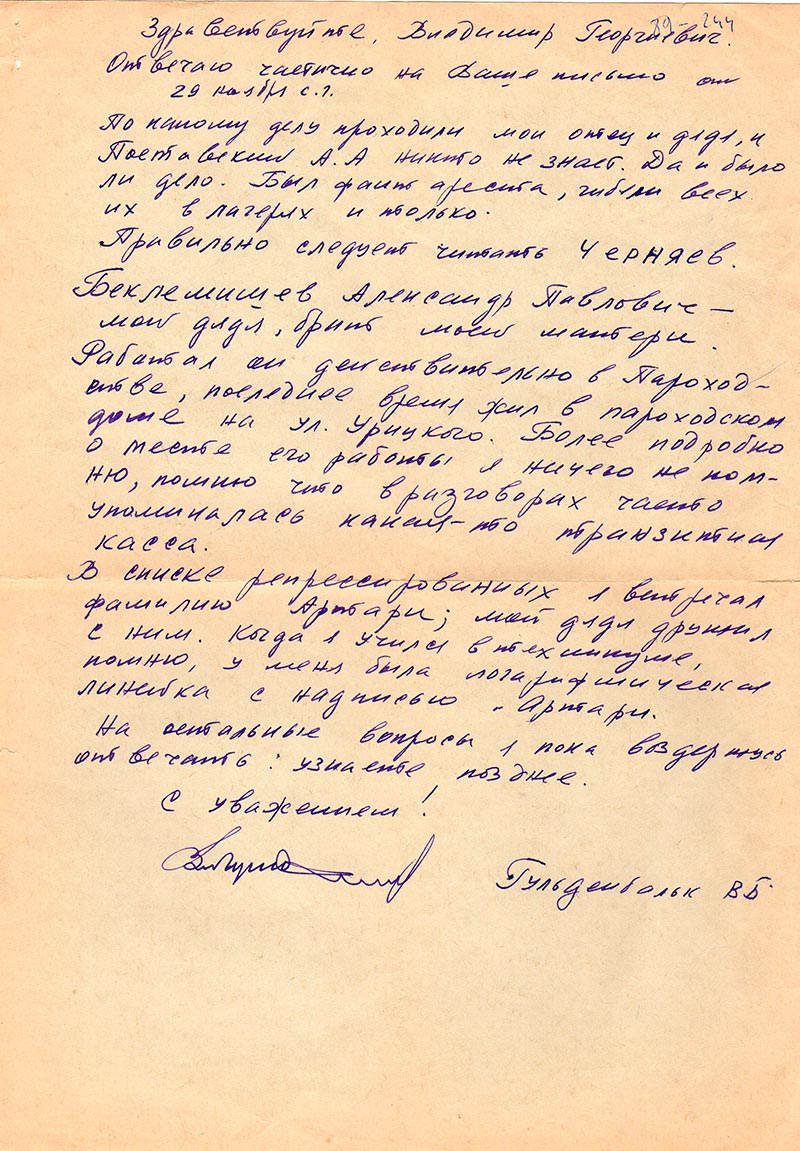 39 244
Здравствуйте, Владимир Георгиевич.
Отвечаю частично на Ваше письмо от
29 ноября с.г.
По какому делу проходили мои отец и дядя, и
Поставский А.А никто не знает. Да и было
ли дело. Был факт ареста, гибели всех
их в лагерях и только.
Правильно следует читать Черняев.
Беклемишев Александр Павлович –
мой дядя, брат моей матери.
Работал он действительно в Пароход-
стве, последнее время жил в пароходском
доме на ул. Урицкого. Более подробно
о месте его работы я ничего не пом-
ню, помню что в разговорах часто
упоминалась какая-то транзитная
касса.
В списке репрессированных я встречал
фамилию Артари; мой дядя дружил
с ним. Когда я учился в техникуме,
помню, у меня была логарифмическая
линейка с надписью - Артари.
На остальные вопросы я пока воздержусь
отвечать: узнаете позднее.
С уважением!
Гульденбальк В.Б.